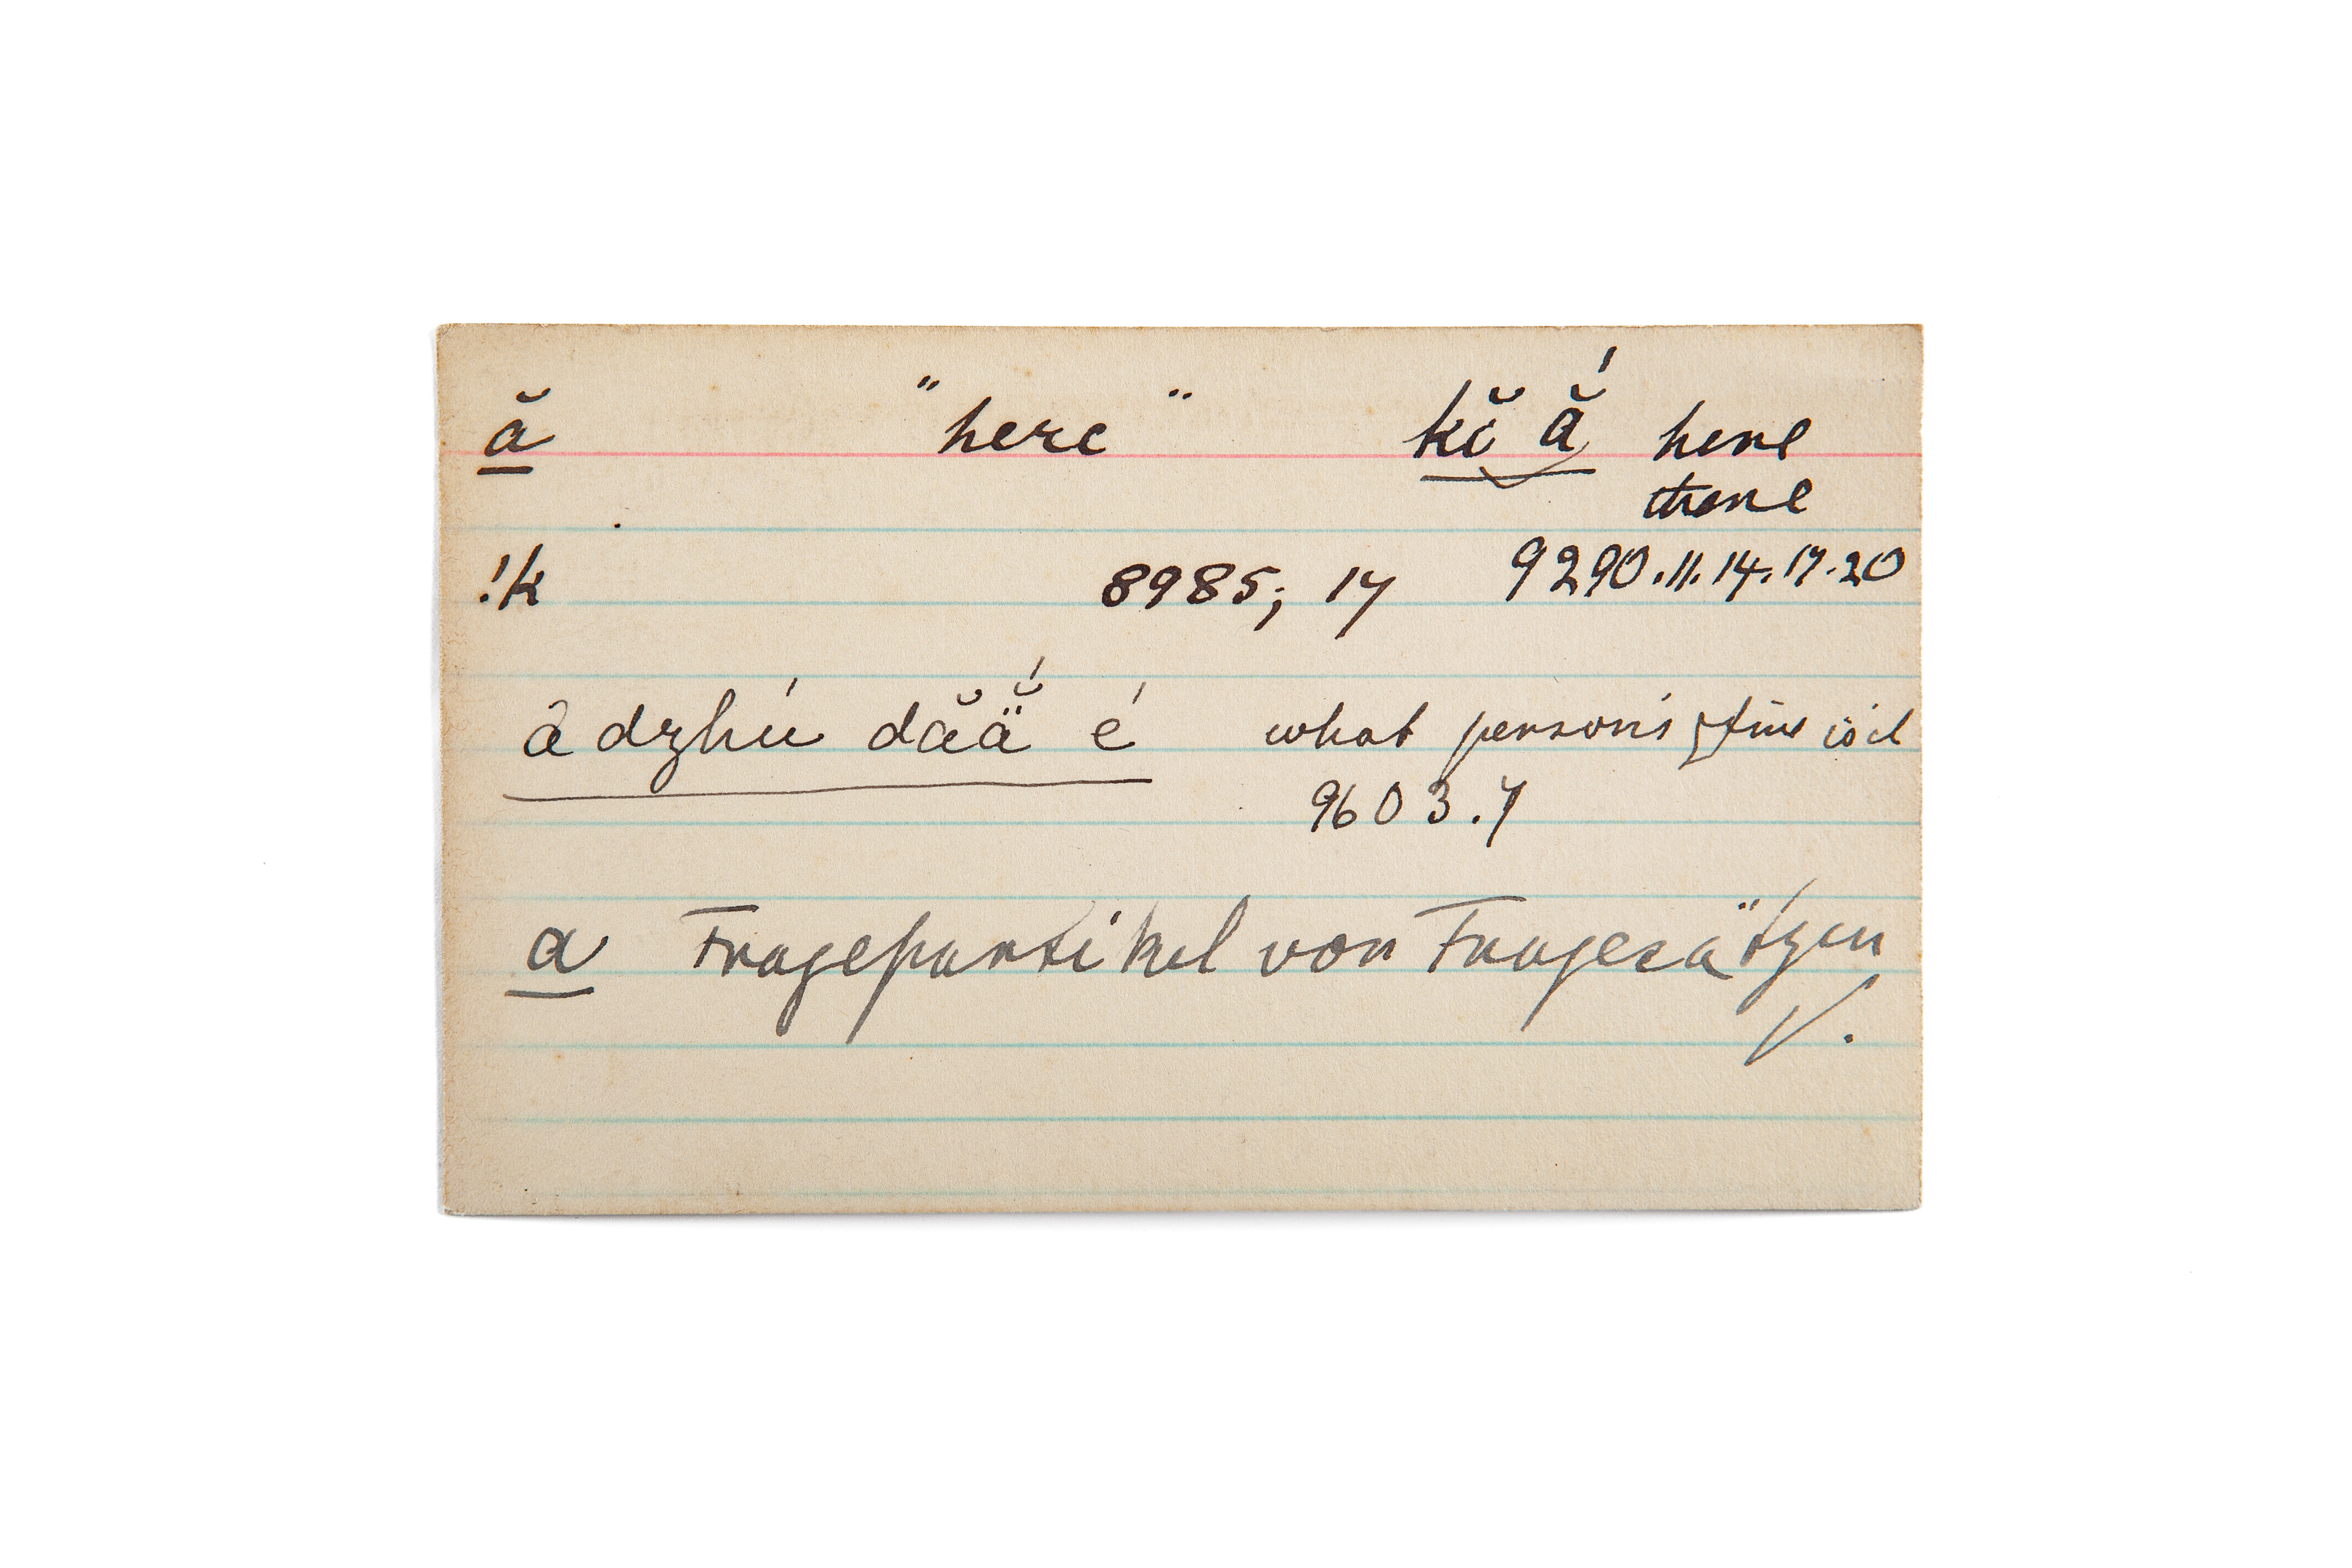 ă "here" kŏ ắ here
there
!k 8985; 17 9290.11.14.17.20
ā dzhú dăä̆́ é what person's fire is it
9603.7
a Fragepartikel von Fragesätzen
V.